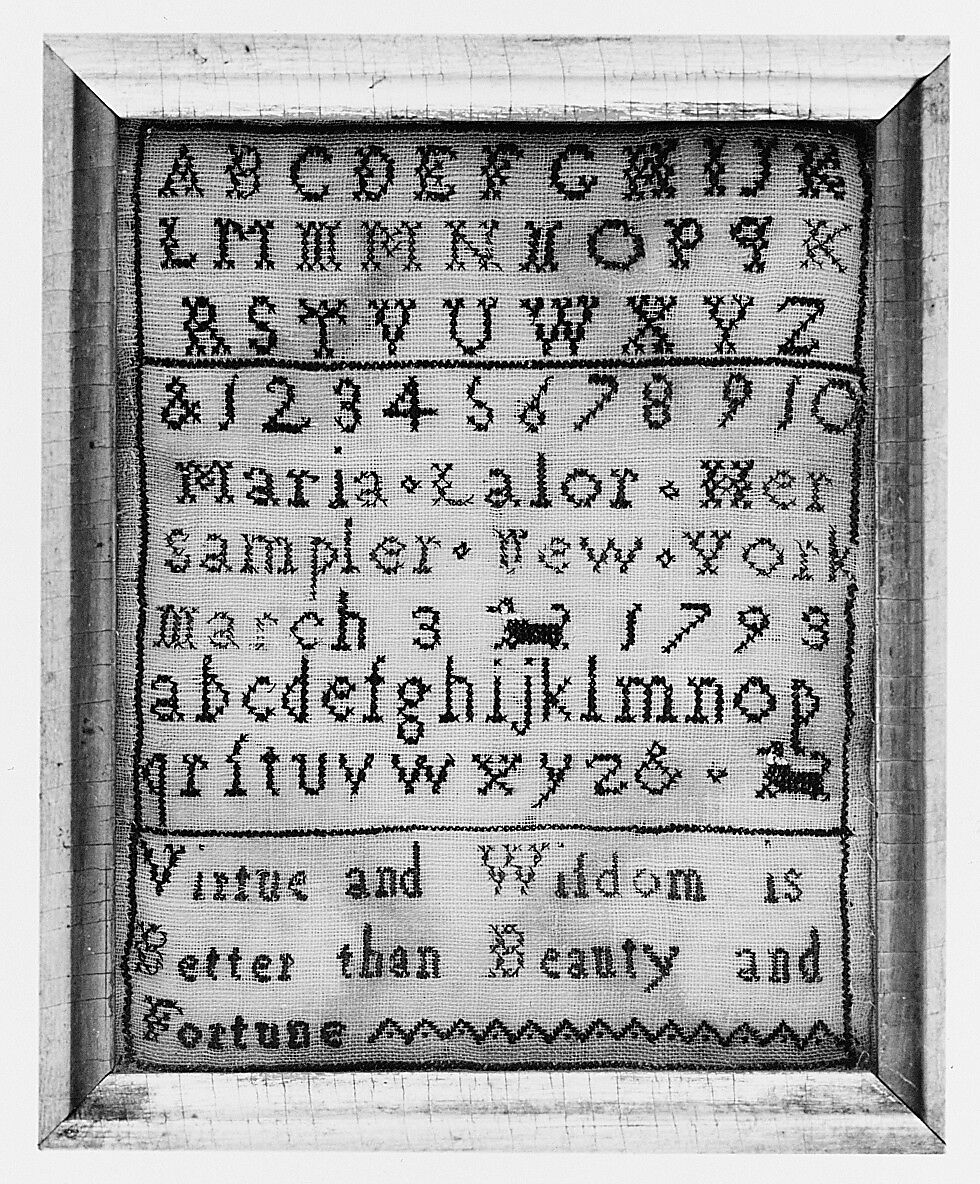 A B C D E F G H I J K
L M M M N N O P q K
R S T V U W X Y Z
& 1 2 3 4 5 6 7 8 9 10
Maria · Lalor · Her
sampler · New · York
march 3 1793
abcdefghijklmnop
qrſtuvwxyz& ·
Virtue and Wiſdom is
Better than Beauty and
Fortune